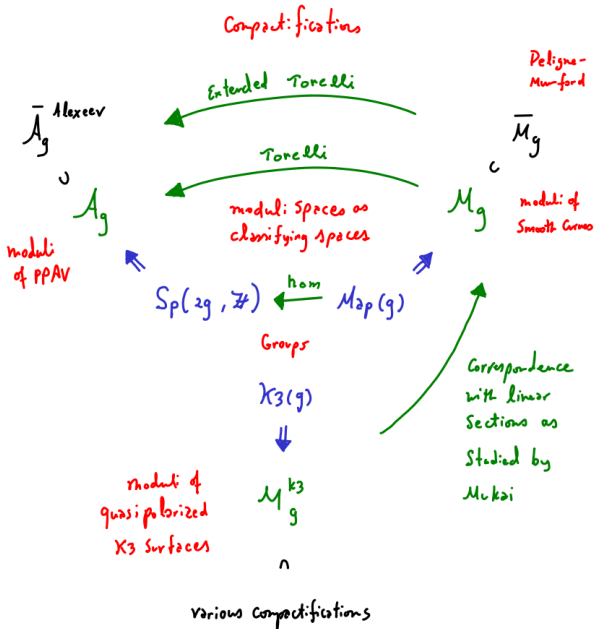 Compactifications
Deligne-
Mumford
Extended Torelli
Ā_g Alexeev
M̄_g
∪
Torelli
∪
A_g
moduli spaces as
classifying spaces
M_g
moduli of
Smooth Curves
moduli
of PPAV
Sp(2g, ℤ)
hom
Map(g)
Groups
K3(g)
Correspondence
with linear
Sections as
Studied by
Mukai
moduli of
quasipolarized
K3 Surfaces
M_g^K3
∩
various compactifications